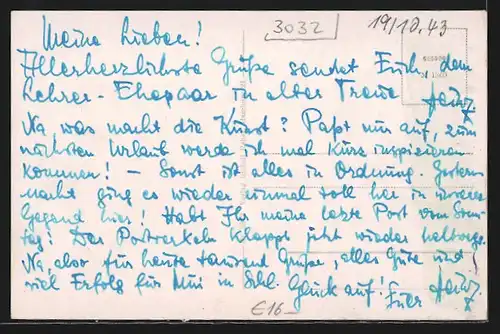 3032
19/10.43
Meine Lieben!
Allerherzlichste Grüße sendet Euch, dem
Lehrer-Ehepaar in alter Treue Heinz
Na, was macht die Kunst? Paßt nur auf, zum
nächsten Urlaub werde ich mal Kurs inspizieren
kommen! – Sonst ist alles in Ordnung. Gestern
nacht ging es wieder einmal toll her in unserer
Gegend hier! Habt Ihr meine letzte Post vom Sonn-
tag? Das klappt jetzt wieder
Na, also für heute tausend Grüße, alles Gute und
viel Erfolg für in Schl. Glück auf! Euer Heinz
€16-